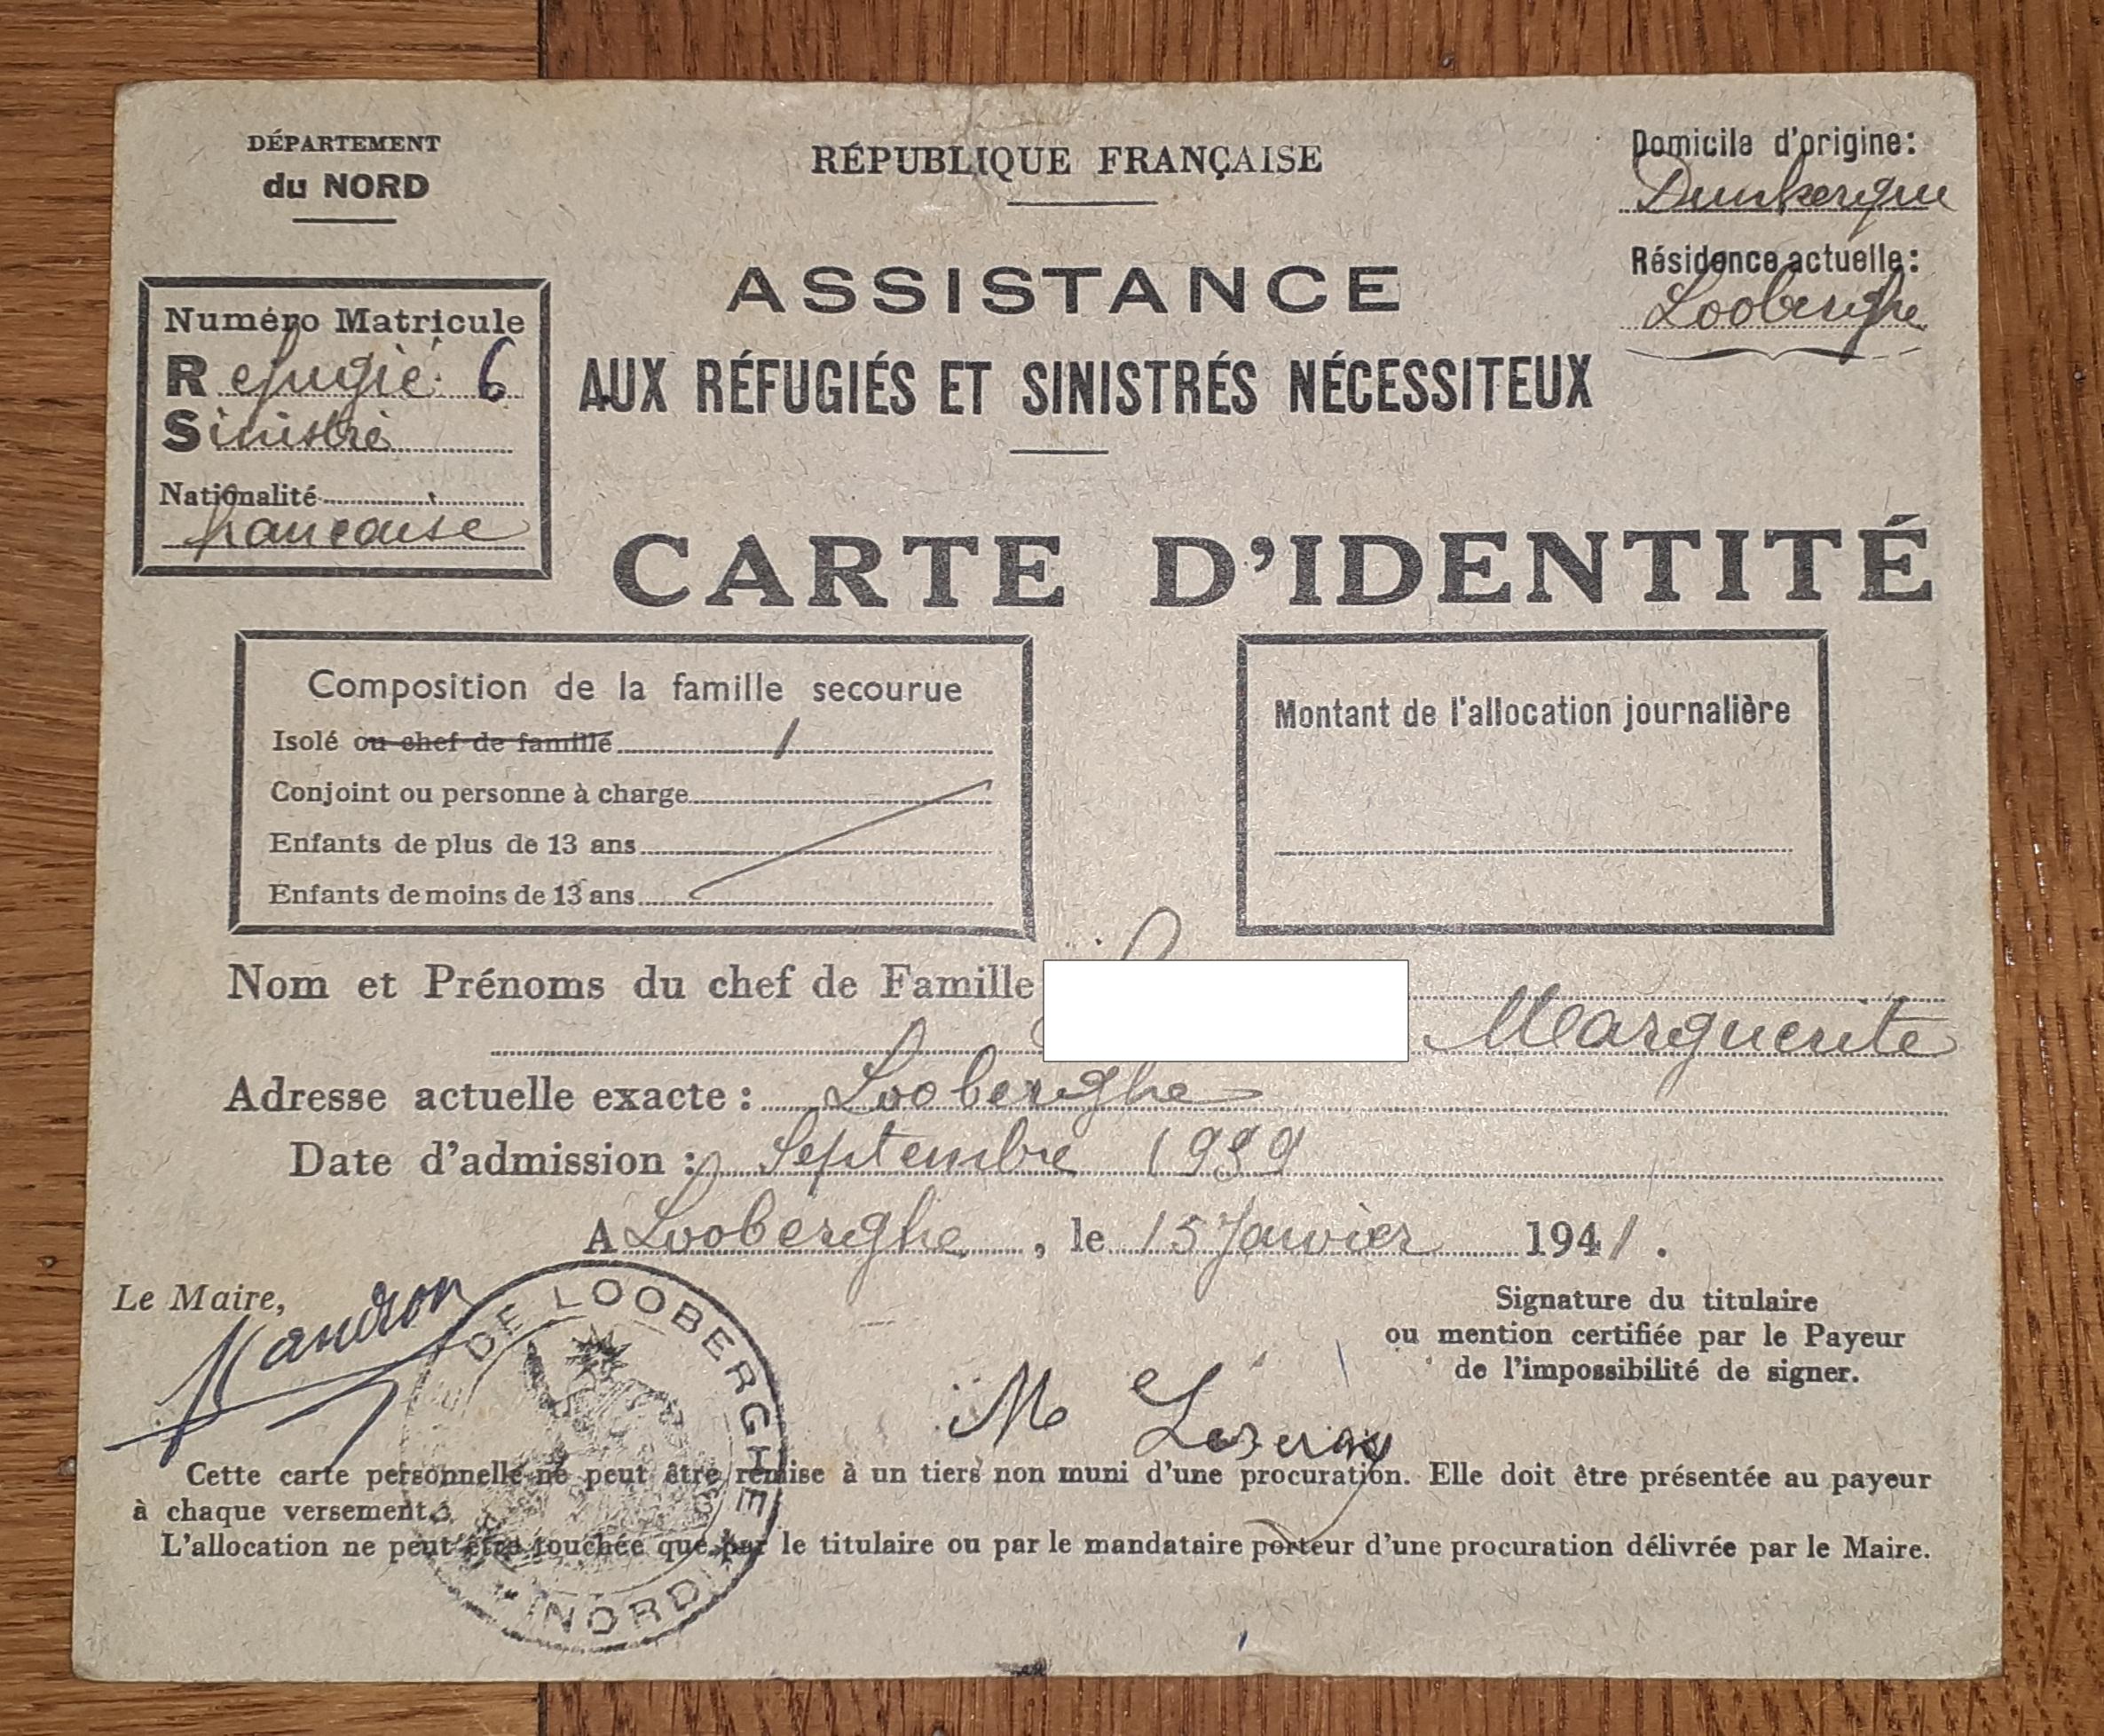 DÉPARTEMENT
du NORD
RÉPUBLIQUE FRANÇAISE
Domicile d'origine:
Dunkerque
Résidence actuelle:
Looberghe
Numéro Matricule
Refugié 6
Sinistré
Nationalité
française
ASSISTANCE
AUX RÉFUGIÉS ET SINISTRÉS NÉCESSITEUX
CARTE D'IDENTITÉ
Composition de la famille secourue
Isolé ou chef de famille 1
Conjoint ou personne à charge
Enfants de plus de 13 ans
Enfants de moins de 13 ans
Montant de l'allocation journalière
Nom et Prénoms du chef de Famille
Marguerite
Adresse actuelle exacte : Looberghe
Date d'admission : Septembre 1939
A Looberghe, le 15 Janvier 1941.
Le Maire,
DE LOOBERGHE
NORD
Signature du titulaire
ou mention certifiée par le Payeur
de l'impossibilité de signer.
M
Cette carte personnelle ne peut être remise à un tiers non muni d'une procuration. Elle doit être présentée au payeur
à chaque versement.
L'allocation ne peut être touchée que par le titulaire ou par le mandataire porteur d'une procuration délivrée par le Maire.